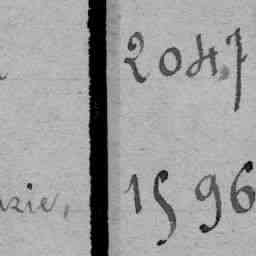 2047
zie, 1596